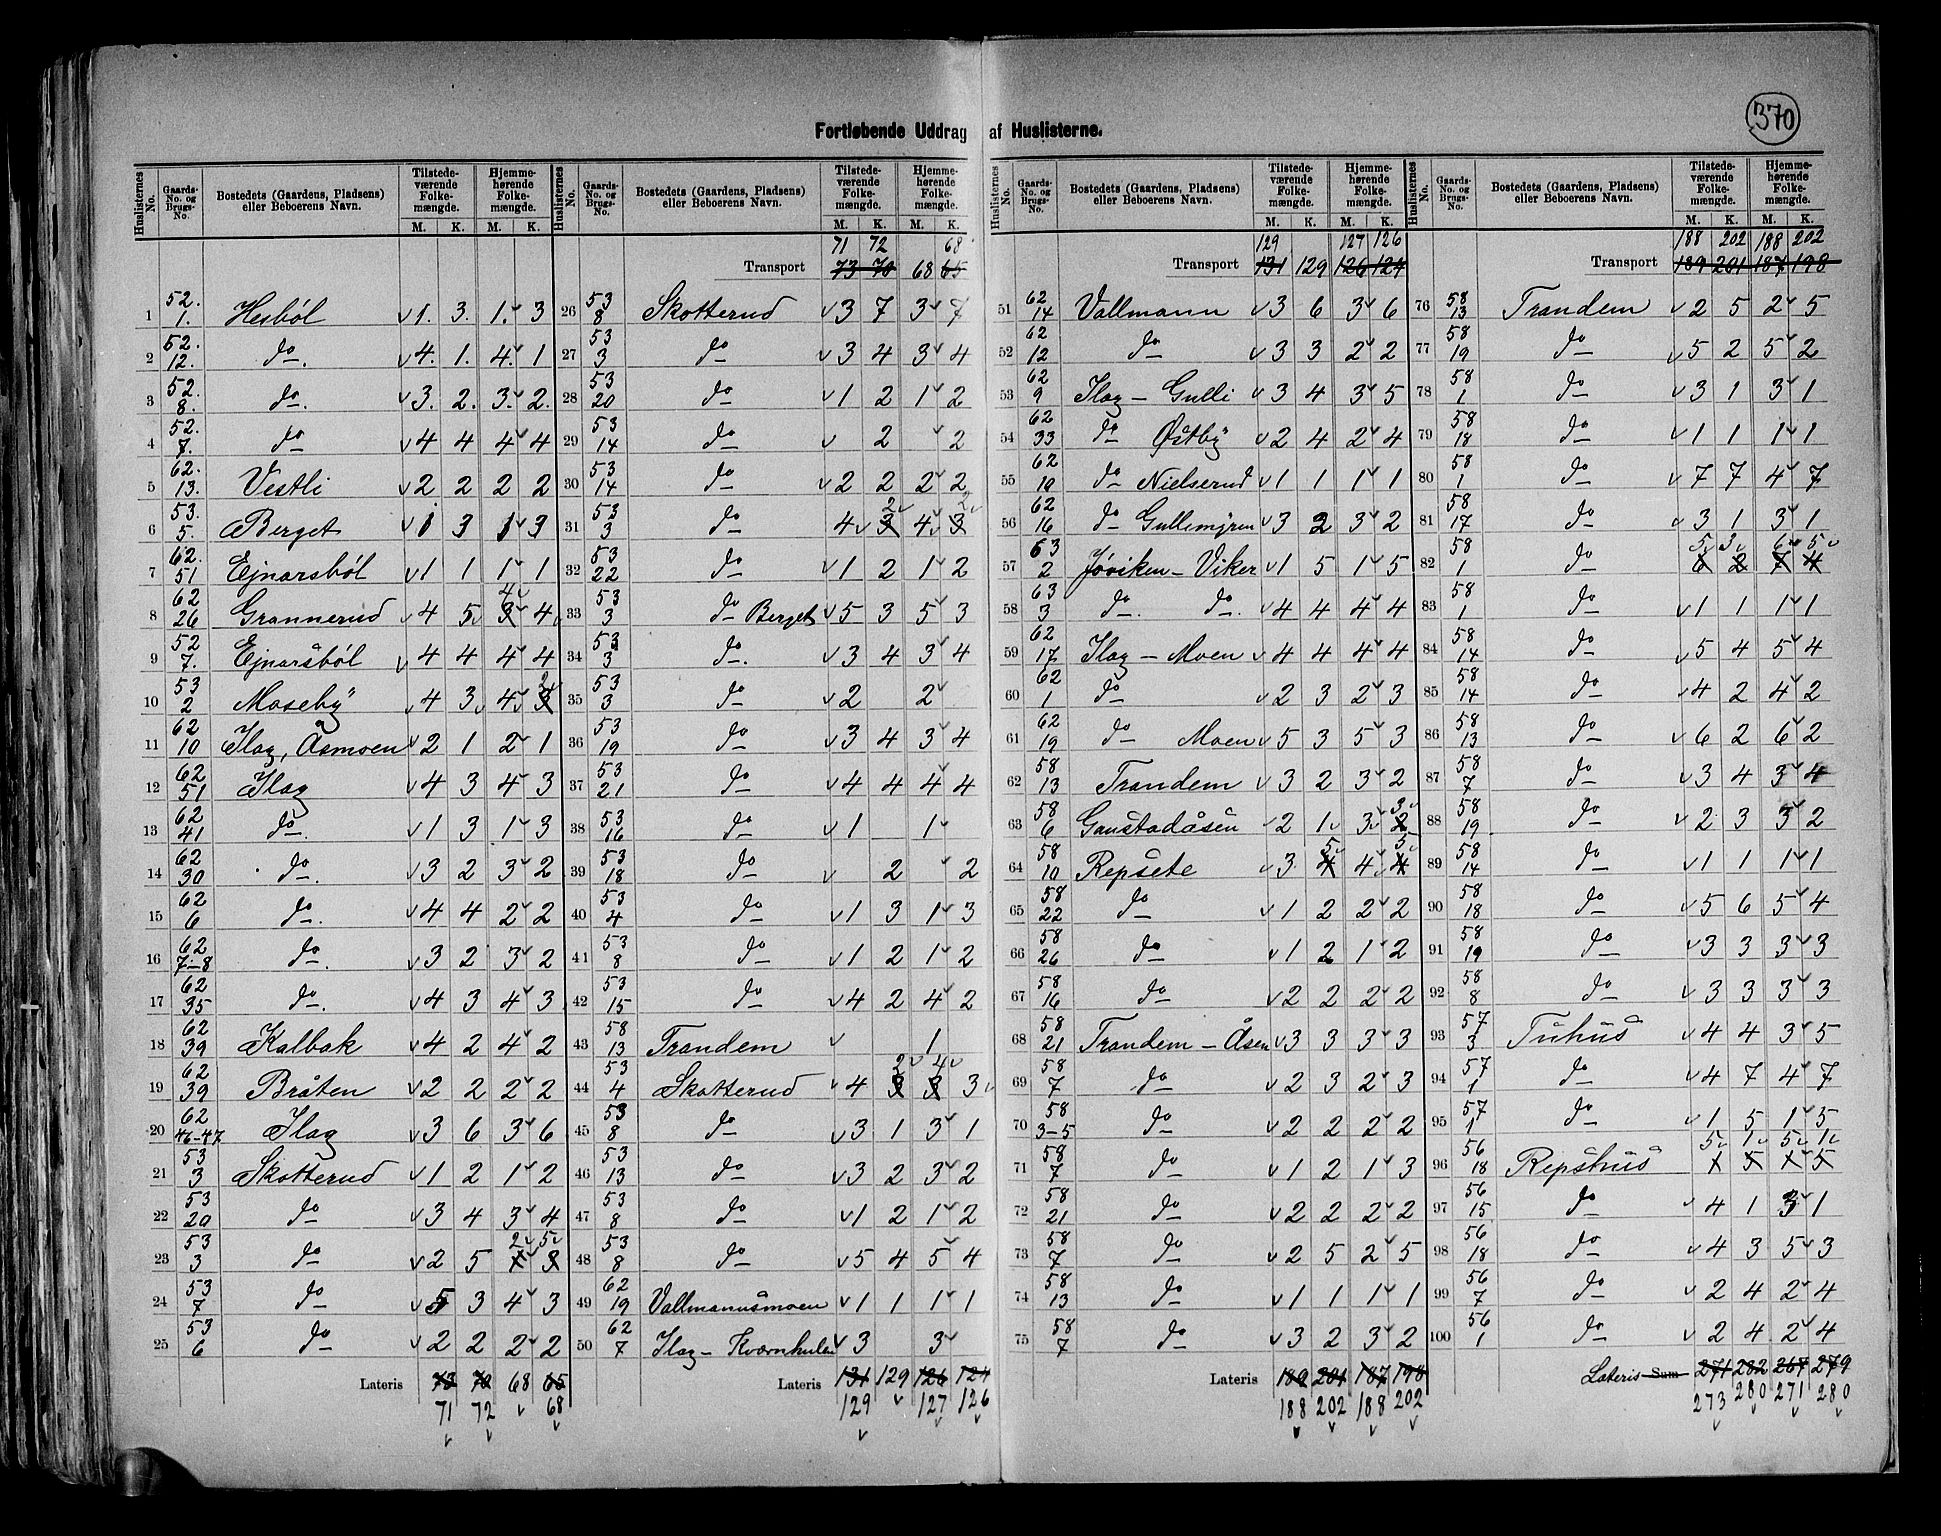 370
Fortløbende Uddrag af Huslisterne.
Huslisternes No. Gaards-No. og Brugs-No. Bostedets (Gaardens, Pladsens) eller Beboerens Navn. Tilstedeværende Folkemængde. M. K. Hjemmehørende Folkemængde. M. K.
1 52. 1. Hesbøl 1. 3. 1. 3
2 52. 12. do. 4. 1. 4. 1
3 52. 8. do. 3. 2. 3. 2.
4 52. 7. do 4 4 4 4
5 62. 13. Vestli 2 2 2 2
6 53. 5. Berget 1 3 1 3
7 62. 51 Ejnarsbøl 1 1 1 1
8 62 26 Grannerud 4 5 3 4 4
9 52 7. Ejnarsbøl 4 4 4 4
10 53 2 Moseby 4 3 4 3 2
11 62 10 Ilag, Åsmoen 2 1 2 1
12 62 51 Ilag 4 3 4 3
13 62 41 do. 1 3 1 3
14 62 30 do. 3 2 3 2
15 62 6 do. 4 4 2 2
16 62 7-8 do. 3 2 3 2
17 62 35 do. 4 3 4 3
18 62 39 Kalbak 4 2 4 2
19 62 39 Bråten 2 2 2 2
20 62 46-47 Ilag 3 6 3 6
21 53 3 Skotterud 1 2 1 2
22 53 20 do 3 4 3 4
23 53 3 do 2 5 2 5
24 53 7 do 5 3 4 3
25 53 6 do 2 2 2 2
Lateris 73 70 68 65
71 72 68
Huslisternes No. Gaards-No. og Brugs-No. Bostedets (Gaardens, Pladsens) eller Beboerens Navn. Tilstedeværende Folkemængde. M. K. Hjemmehørende Folkemængde. M. K.
71 72 68
Transport 73 70 68 65
26 53 8 Skotterud 3 7 3 7
27 53 3 do 3 4 3 4
28 53 20 do 1 2 1 2
29 53 14 do 2 2
30 53 14 do 2 2 2 2
31 53 3 do 4 3 2 4 3 2
32 53 22 do 1 2 1 2
33 53 3 do Berget 5 3 5 3
34 53 3 do. 3 4 3 4
35 53 3 do 2 2
36 53 19 do 3 4 3 4
37 53 21 do 4 4 4 4
38 53 16 do 1 1
39 53 18 do 2 2
40 53 4 do 1 3 1 3
41 53 8 do 1 2 1 2
42 53 15 do 4 2 4 2
43 58 13 Trandem 1
44 53 4 Skotterud 4 3 2 3 4 3
45 53 8 do 3 1 3 1
46 53 13 do 3 2 3 2
47 53 8 do 1 2 1 2
48 53 8 do 5 4 5 4
49 62 19 Vallmannsmoen 1 1 1 1
50 62 7 Ilag - Kvernhulen 3 3
Lateris 131 129 126 124
129 127 126
Huslisternes No. Gaards-No. og Brugs-No. Bostedets (Gaardens, Pladsens) eller Beboerens Navn. Tilstedeværende Folkemængde. M. K. Hjemmehørende Folkemængde. M. K.
129 127 126
Transport 131 129 126 124
51 62 14 Vallmann 3 6 3 6
52 62 12 do 3 3 2 2
53 62 9 Ilag - Gulli 3 4 3 5
54 62 33 do Østby 2 4 2 4
55 62 19 do Nielserud 1 1 1 1
56 62 16 do Gullimyren 3 2 3 2
57 63 2 Jøviken - Viker 1 5 1 5
58 63 3 do. do. 4 4 4 4
59 62 17 Ilag - Moen 4 4 4 4
60 62 1 do 2 3 2 3
61 62 19 do Moen 5 3 5 3
62 58 13 Trandem 3 2 3 2
63 58 6 Gaustadåsen 2 1 3 2 3
64 58 10 Repsete 3 4 5 4 4 5
65 58 22 do 1 2 2 2
66 58 26 do 1 2 1 2
67 58 16 do 2 2 2 2
68 58 21 Trandem - Åsen 3 3 3 3
69 58 7 do 2 3 2 3
70 58 3-5 do 2 2 2 2
71 58 7 do 1 2 1 3
72 58 21 do 2 2 2 2
73 58 7 do 2 5 2 5
74 58 13 do 1 1 1 1
75 58 7 do 3 2 3 2
Lateris 189 201 187 198
188 202 188 202
Huslisternes No. Gaards-No. og Brugs-No. Bostedets (Gaardens, Pladsens) eller Beboerens Navn. Tilstedeværende Folkemængde. M. K. Hjemmehørende Folkemængde. M. K.
188 202 188 202
Transport 189 201 187 198
76 58 13 Trandem 2 5 2 5
77 58 19 do 5 2 5 2
78 58 1 do 3 1 3 1
79 58 18 do 1 1 1 1
80 58 1 do 7 7 4 7
81 58 17 do 3 1 3 1
82 58 1 do 6 5 2 3 7 6 4 5
83 58 1 do 1 1 1 1
84 58 14 do 5 4 5 4
85 58 14 do 4 2 4 2
86 58 13 do 6 2 6 2
87 58 7 do 3 4 3 4
88 58 19 do 2 3 3 2
89 58 14 do 1 1 1 1
90 58 18 do 5 6 5 4
91 58 19 do 3 3 3 3
92 58 8 do 3 3 3 3
93 57 3 Tuhus 4 4 3 5
94 57 1 do 4 7 4 7
95 57 1 do 1 5 1 5
96 56 18 Repshus 1 5 5 1 1 5 5 1
97 56 15 do 4 1 3 1
98 56 18 do 4 3 5 3
99 56 7 do 2 4 2 4
100 56 1 do 2 4 2 4
Lateris Sum 271 282 267 279
273 280 271 280